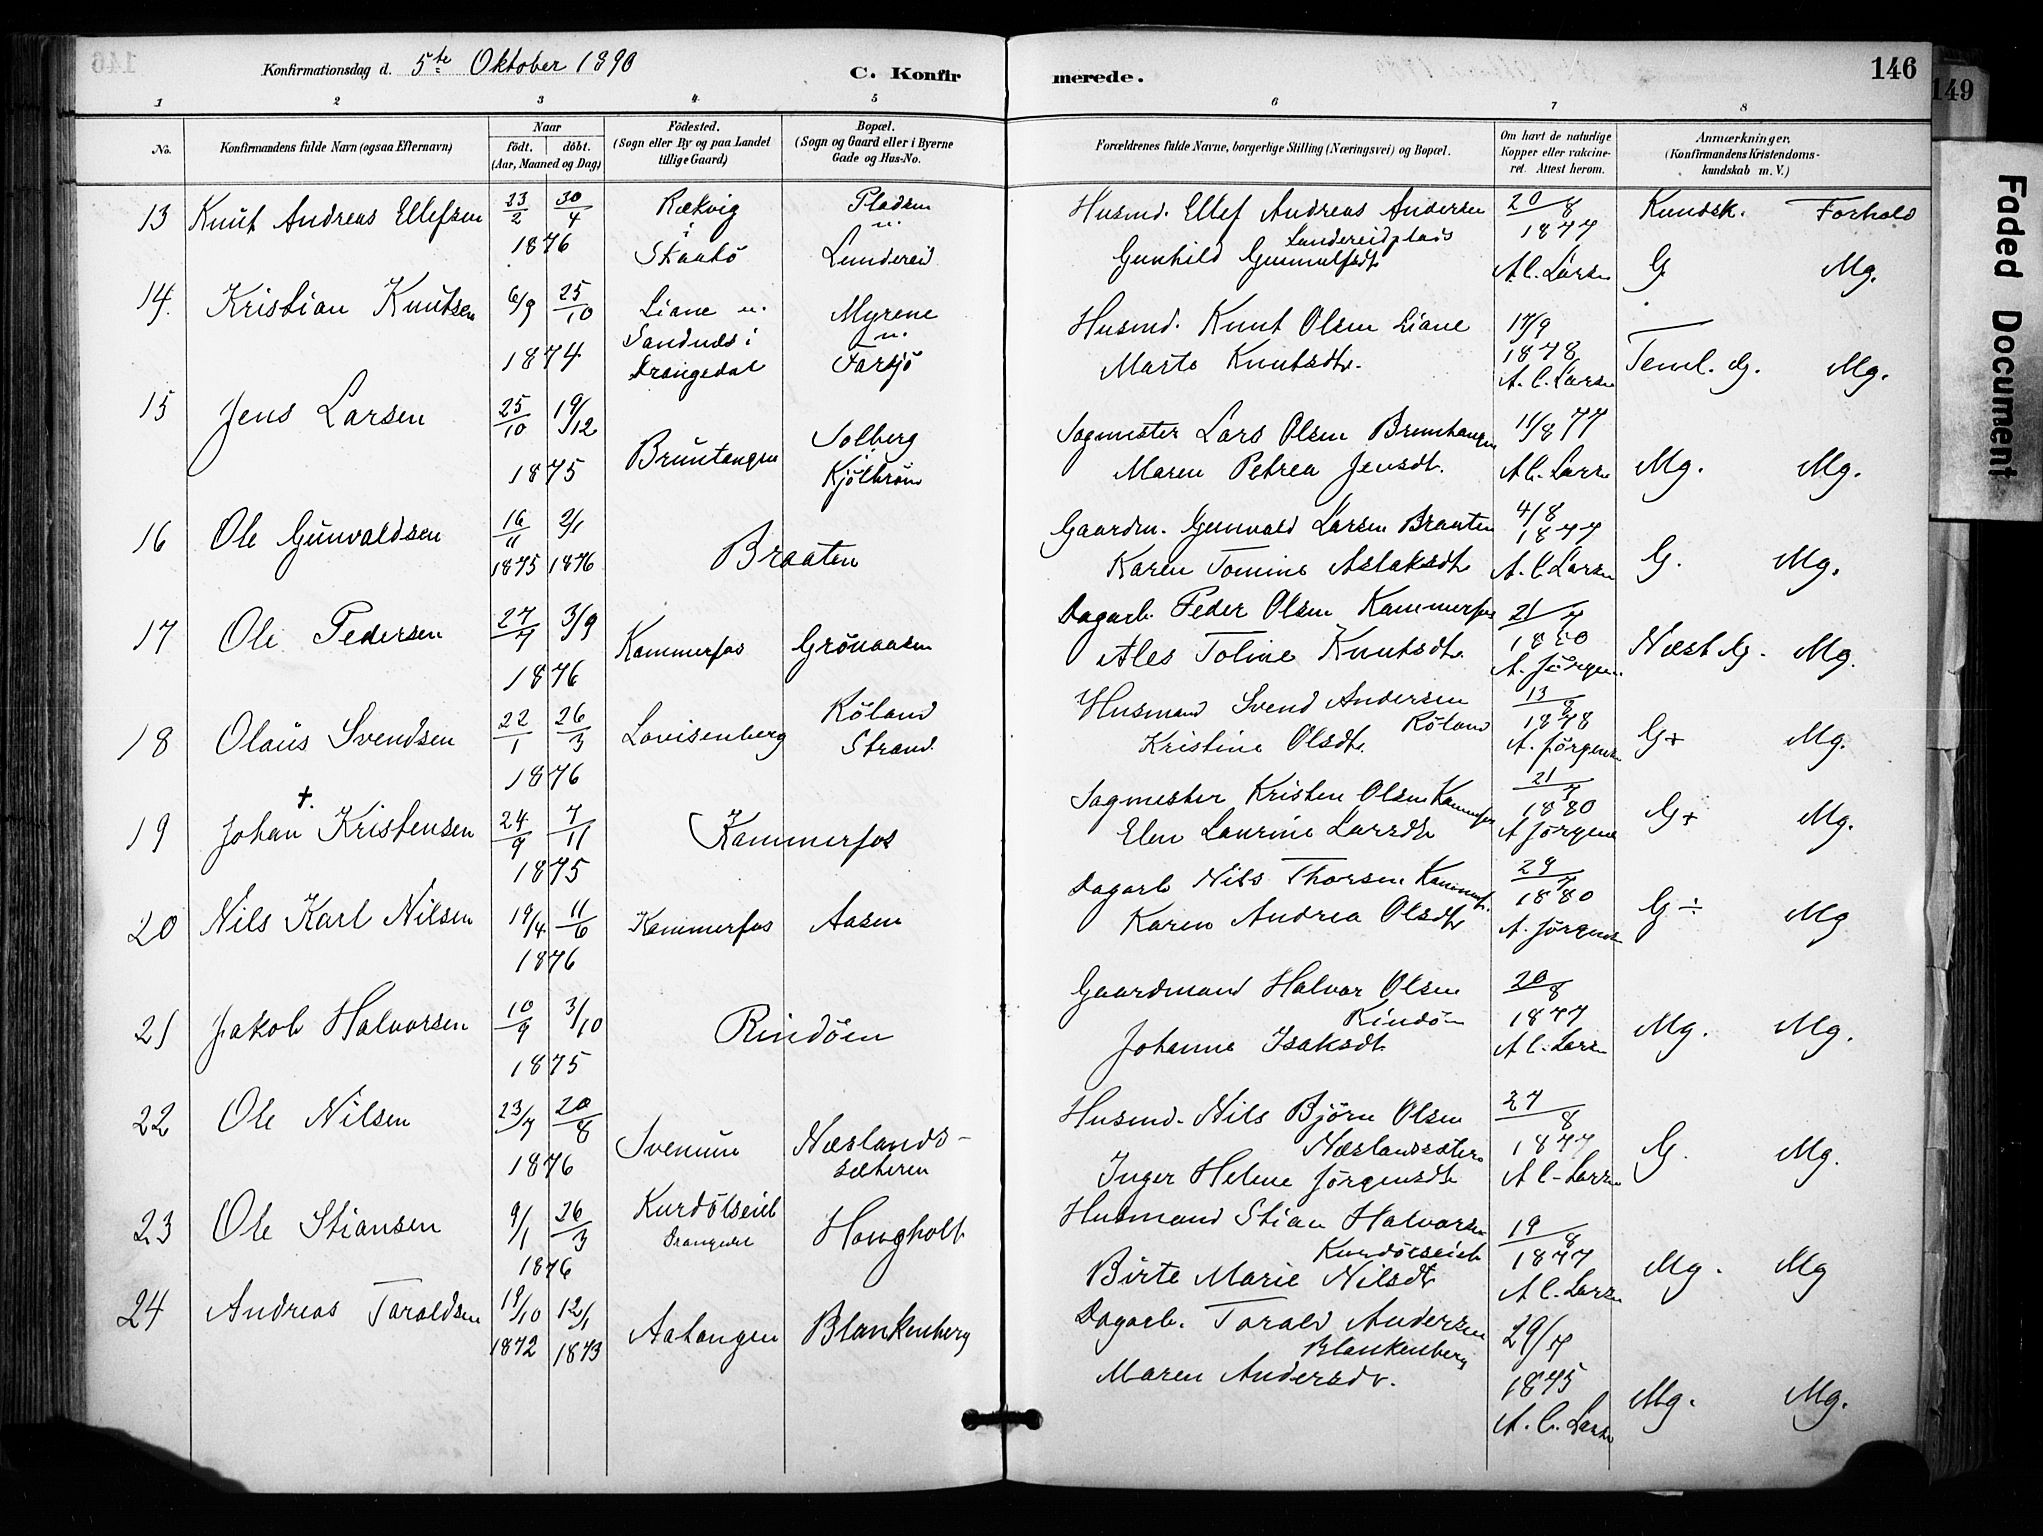 146
Konfirmationsdag d. 5te Oktober 1890
C. Konfirmerede.
146
149
Faded Document
1 2 3 4 5 6 7 8
No.
Konfirmandens fulde Navn (ogsaa Efternavn)
Naar
födt. döbt.
(Aar, Maaned og Dag)
Födested.
(Sogn eller By og paa Landet
tillige Gaard)
Bopæl.
(Sogn og Gaard eller i Byerne
Gade og Hus-No.
Forældrenes fulde Navne, borgerlige Stilling (Næringsvei) og Bopæl.
Om havt de naturlige
Kopper eller vakcine-
ret. Attest herom.
Anmærkninger.
(Konfirmandens Kristendoms-
kundskab m. V.)
Kundsk. Forhold
13 Knut Andreas Ellefsen 23/2 30/4 1876
Rekvig i Skaatö
Pladsen u. Lundereid
Husmd. Ellef Andreas Andersen
Lundereidplads
Gunhild Gunnulfsdt.
20/8 1877 A.C. Larsen
G Mg.
14. Kristian Knutsen 6/9 25/10 1874
Liane u. Sandnes i Drangedal
Myrene u. Farsjö
Husmd. Knut Olsen Liane
Marte Knutsdt.
17/9 1878 A.C. Larsen
Teml. G. Mg.
15 Jens Larsen 25/10 19/12 1875
Bruntangen
Solberg Kjölbrönd
Sagmester Lars Olsen Bruntangen
Maren Petrea Jensdt.
11/8 77 A.C. Larsen
Mg. Mg.
16 Ole Gunvaldsen 16/11 1875 2/1 1876
Braaten
Gaardm. Gunvald Larsen Braaten
Karen Tomine Aslaksdt
4/8 1877 A.C. Larsen
G. Mg.
17 Ole Pedersen 27/7 3/9 1876
Kammerfos
Grönaasen
Dagarb. Peder Olsen Kammerfos
Ales Toline Knutsdt.
21/7 1880 A. Jörgens.
Næst G. Mg.
18 Olaus Svendsen 22/1 26/3 1876
Lovisenberg
Röland Strand
Husmand Svend Andersen
Röland
Kristine Olsdt.
13/8 1878 A. Jörgensen
G+ Mg.
19 Johan +. Kristensen 24/9 7/11 1875
Kammerfos
Sagmester Kristen Olsen Kammerfos
Elen Laurine Larsdt
21/7 1880 A Jörgens
G+ Mg.
20 Nils Karl Nilsen 19/4 11/6 1876
Kammerfos
Aasen
Dagarb Nils Thorsen Kammerf.
Karen Andrea Olsdt
29/7 1880 A. Jörgens
G ÷ Mg
21 Jakob Halvorsen 10/9 3/10 1875
Rindöen
Gaardmand Halvor Olsen
Rindöen
Johanne Isaksdt.
20/8 1877 A C. Larsen
Mg. Mg.
22 Ole Nilsen 23/7 20/8 1876
Svenum
Næslands-sæteren
Husmd. Nils Björn Olsen
Næslandssæteren
Inger Helene Jörgensdt
27/8 1877 A C. Larsen
G. Mg.
23 Ole Stiansen 9/1 26/3 1876
Kurdölseieb Drangedal
Hougholt
Husmand Stian Halvorsen
Kurdölseieb
Birte Marie Nilsdt
19/8 1877 A C. Larsen
Mg. Mg
24 Andreas Taraldsen 19/10 1872 12/1 1873
Aatangen
Blankenberg
Dagarb. Tarald Andersen
Blankenberg
Maren Andersdr.
29/7 1875 A. C. Larsen
Mg. Mg.